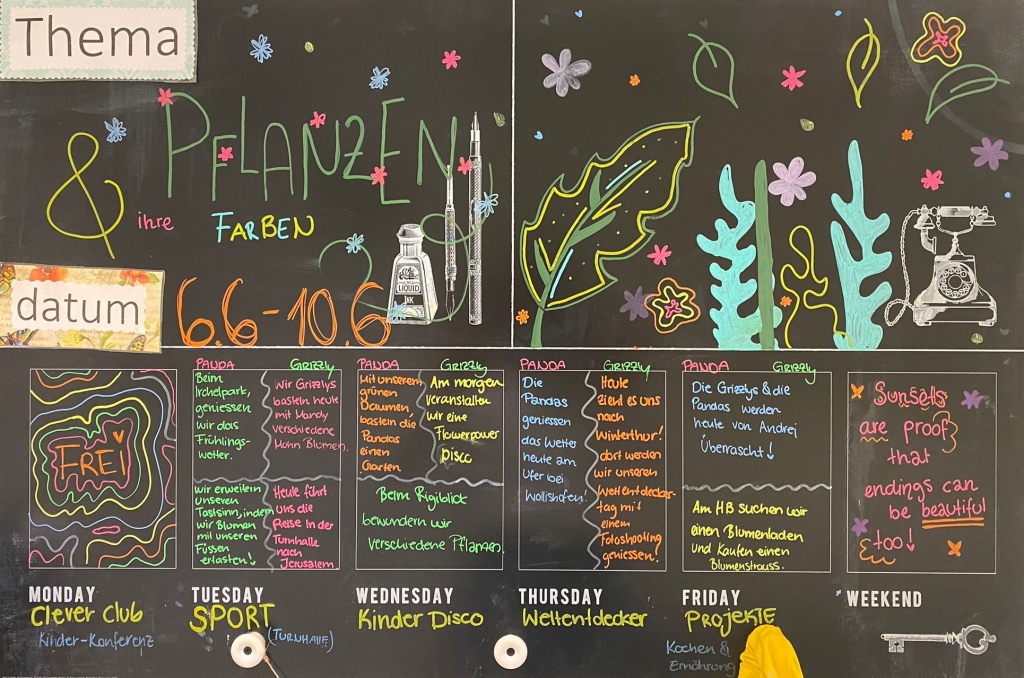 Thema
PFLANZEN
&
ihre
FARBEN
LIQUID
INK
datum
6.6-10.6
FREi
PANDA
GRIZZLY
Beim
Irchelpark,
geniessen
wir das
Frühlings-
wetter.
Wir Grizzlys
basteln heute
mit Mandy
verschiedene
Mohn Blumen.
wir erweitern
unseren
Tastsinn, indem
wir Blumen
mit unseren
Füssen
ertasten!
Heute führt
uns die
Reise in der
Turnhalle
nach
Jerusalem
PANDA
GRIZZLY
Mit unserem
grünen
Daumen
basteln die
Pandas
einen
Garten.
Am morgen
veranstalten
wir eine
Flowerpower
Disco
Beim Rigiblick
bewundern wir
verschiedene Pflanzen.
PANDA
GRIZZLY
Die
Pandas
geniessen
das Wetter
heute am
Ufer bei
Wollishofen!
Heute
zieht es uns
nach
Winterthur!
dort werden
wir unseren
Weltentdecker-
tag mit
einem
Fotoshooting
geniessen!
PANDA
GRIZZLY
Die Grizzlys & die
Pandas werden
heute von Andrej
Überrascht!
Am HB suchen wir
einen Blumenladen
und Kaufen einen
Blumenstrauss.
Sunsets
are proof
that
endings can
be beautiful
too!
MONDAY
Clever Club
Kinder-Konferenz
TUESDAY
SPORT
(TURNHALLE)
WEDNESDAY
Kinder Disco
THURSDAY
Weltentdecker
FRIDAY
PROJEKTE
Kochen &
Ernährung
WEEKEND